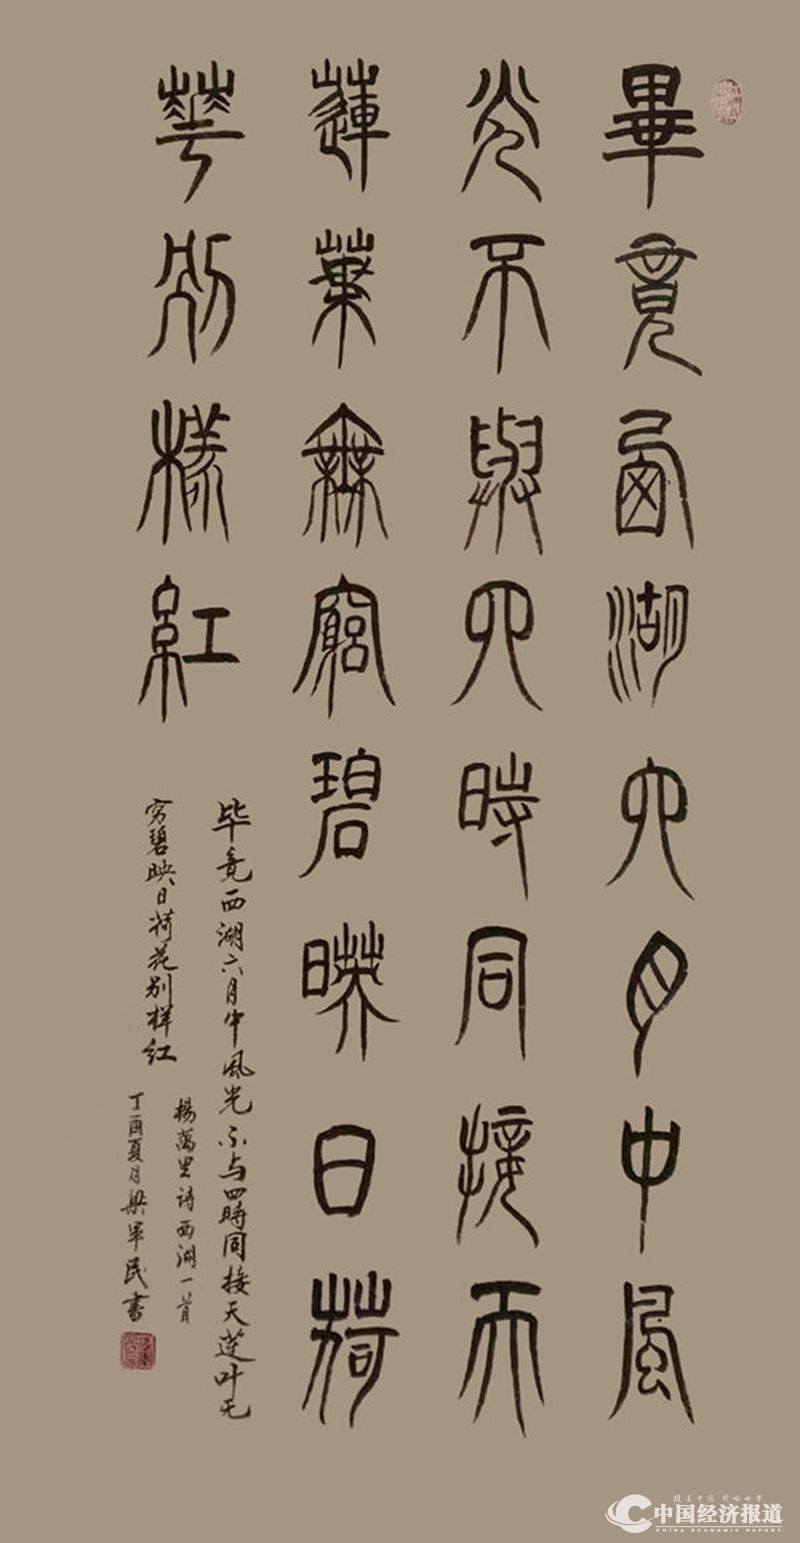 畢竟西湖六月中風
光不與四時同接天
蓮葉無窮碧映日荷
華別樣紅
毕竟西湖六月中风光不与四時同接天莲叶无
穷碧映日荷花别样红
楊萬里诗西湖一首
丁酉夏月梁军民書
中国经济报道
CHINA ECONOMIC REPORT